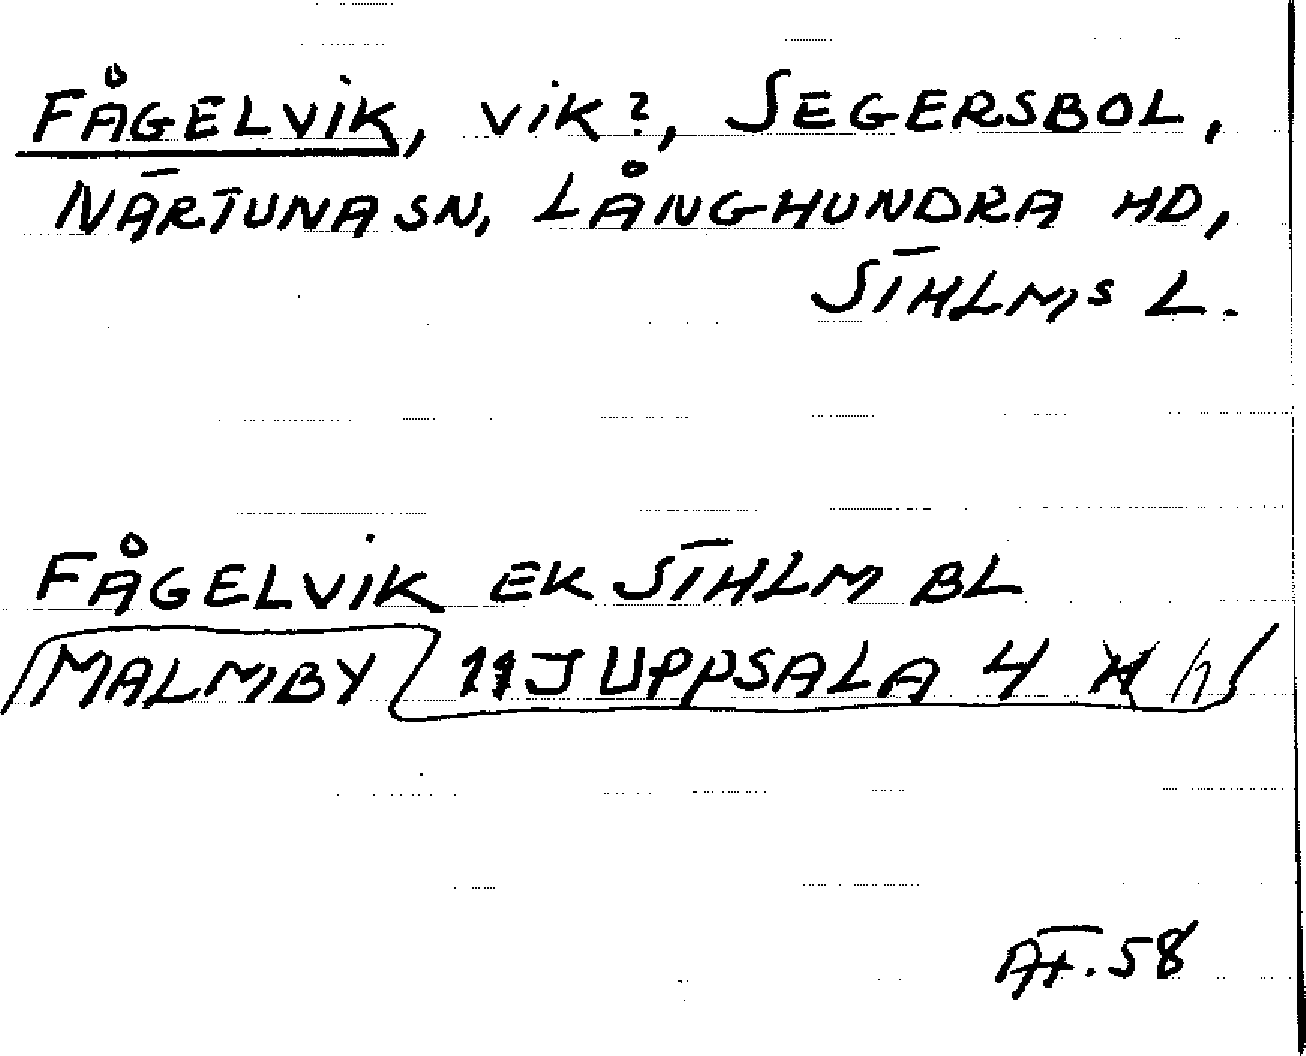 FÅGELVIK, VIK?, SEGERSBOL,
NÄRTUNA SN, LÅNGHUNDRA HD,
STHLMS L.
FÅGELVIK EK STHLM BL
MALMBY 11J UPPSALA 4
ÄT. 58